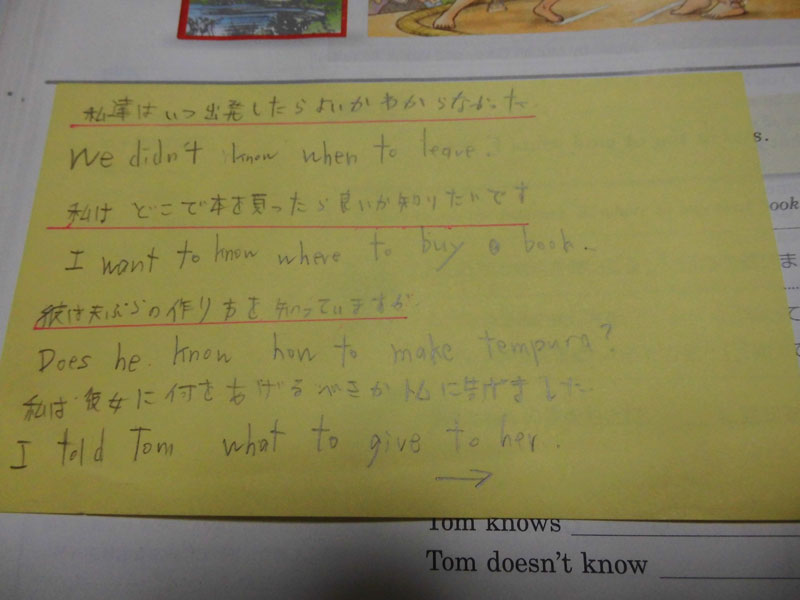 私達はいつ出発したらよいかわからなかった
We didn't know when to leave.
私は どこで本を買ったら良いか知りたいです
I want to know where to buy a book.
彼は天ぷらの作り方を知っていますか
Does he know how to make tempura?
私は 彼女に何をあげるべきかトムに告げました.
I told Tom what to give to her.
→
s.
ook
ま
て
Tom knows
Tom doesn't know